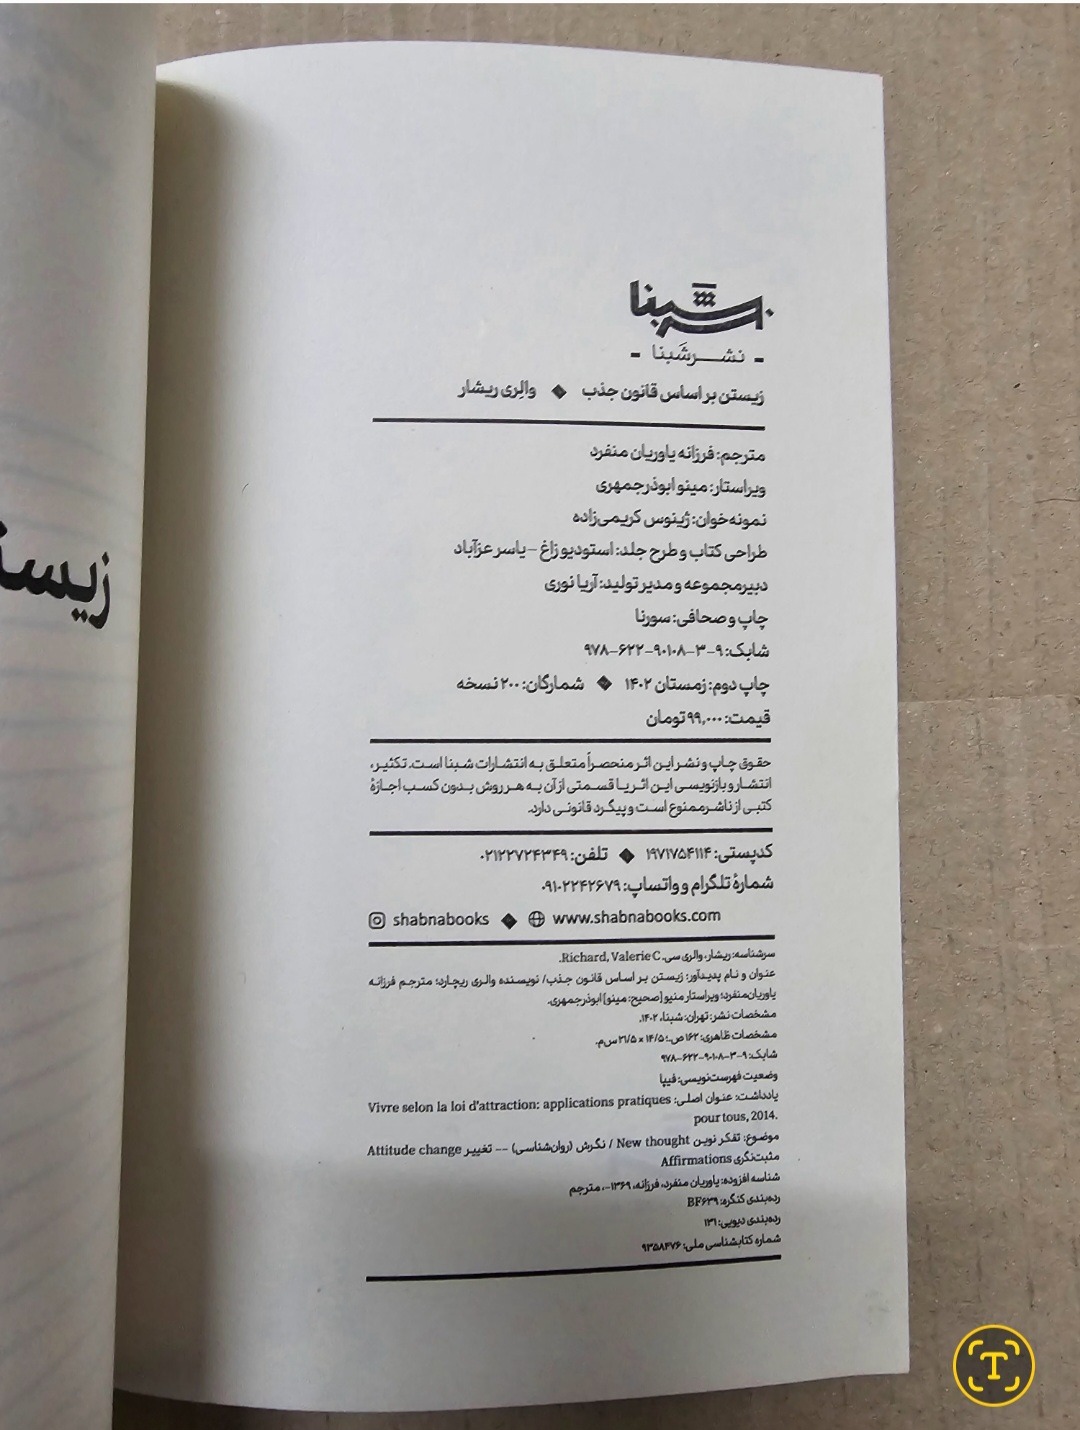 نشر شبنا
- نشر شَبنا -
زیستن بر اساس قانون جذب ◆ والِری ریشار
مترجم: فرزانه یاوریان منفرد
ویراستار: مینو ابوذرجمهری
نمونه‌خوان: ژینوس کریمی‌زاده
طراحی کتاب و طرح جلد: استودیو زاغ – یاسر عزآباد
دبیر مجموعه و مدیر تولید: آریا نوری
چاپ و صحافی: سورنا
شابک: ۹-۳-۹۰۱۰۸-۶۲۲-۹۷۸
چاپ دوم: زمستان ۱۴۰۲ ◆ شمارگان: ۲۰۰ نسخه
قیمت: ۹۹,۰۰۰ تومان
حقوق چاپ و نشر این اثر منحصراً متعلق به انتشارات شبنا است. تکثیر،
انتشار و بازنویسی این اثر یا قسمتی از آن به هر روش بدون کسب اجازهٔ
کتبی از ناشر ممنوع است و پیگرد قانونی دارد.
کدپستی: ۱۹۷۱۷۵۴۱۱۴ ◆ تلفن: ۰۲۱۲۲۷۲۴۳۴۹
شمارهٔ تلگرام و واتساپ: ۰۹۱۰۲۲۴۲۶۷۹
shabnabooks ◆ www.shabnabooks.com
سرشناسه: ریشار، والری سی. Richard, Valerie C.
عنوان و نام پدیدآور: زیستن بر اساس قانون جذب/ نویسنده والری ریچارد؛ مترجم فرزانه
یاوریان‌منفرد؛ ویراستار منیو [صحیح: مینو] ابوذرجمهری.
مشخصات نشر: تهران: شبنا، ۱۴۰۲.
مشخصات ظاهری: ۱۶۲ ص.؛ ۱۴/۵ × ۲۱/۵ س‌م.
شابک: ۹-۳-۹۰۱۰۸-۶۲۲-۹۷۸
وضعیت فهرست‌نویسی: فیپا
یادداشت: عنوان اصلی: Vivre selon la loi d'attraction: applications pratiques
pour tous, 2014.
موضوع: تفکر نوین New thought / نگرش (روان‌شناسی) -- تغییر Attitude change
مثبت‌نگری Affirmations
شناسه افزوده: یاوریان منفرد، فرزانه، ۱۳۶۹-، مترجم
رده‌بندی کنگره: BF۶۳۹
رده‌بندی دیویی: ۱۳۱
شماره کتابشناسی ملی: ۹۳۵۸۴۷۶